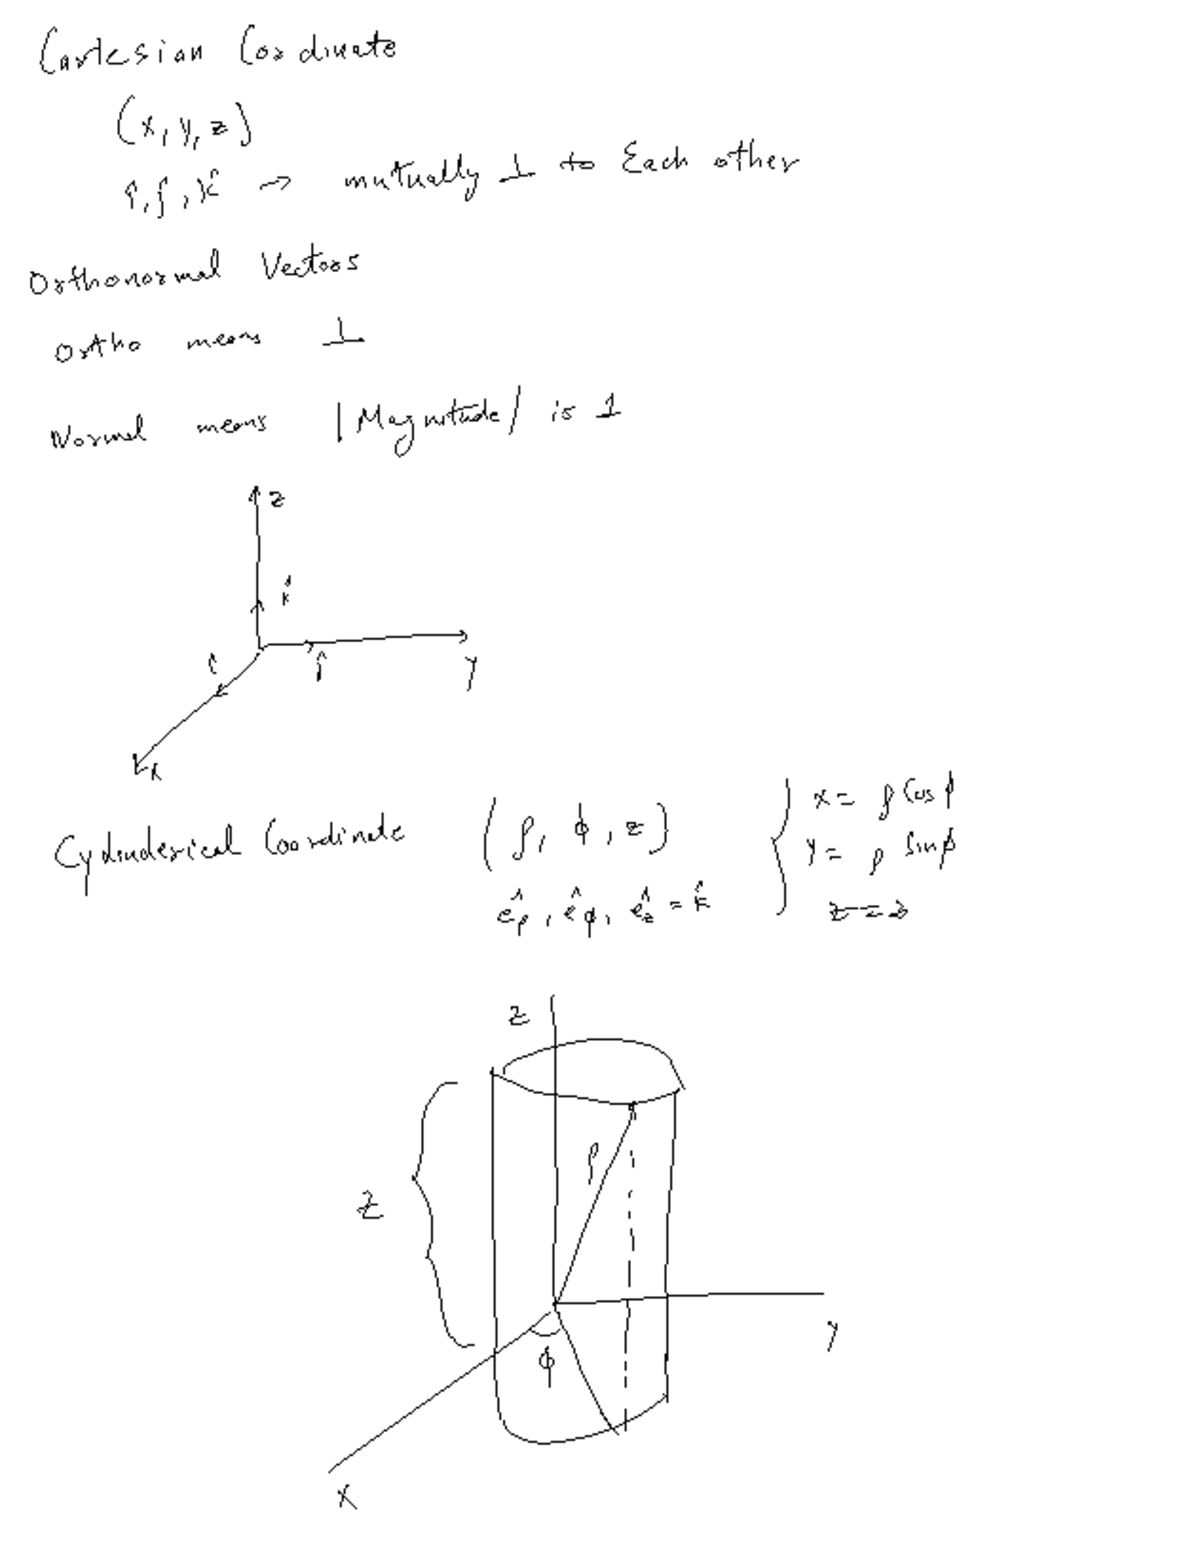 Cartesian Coordinate
(x, y, z)
î, ĵ, k̂ → mutually ⊥ to Each other
Orthonormal Vectors
Ortho means ⊥
Normal means |Magnitude| is 1
z
k̂
î
ĵ
y
x
Cylinderical Coordinate (ρ, ϕ, z)
ê_ρ, ê_ϕ, ê_z = k̂
x = ρ Cos ϕ
y = ρ Sin ϕ
z = z
z
ρ
z
y
ϕ
x